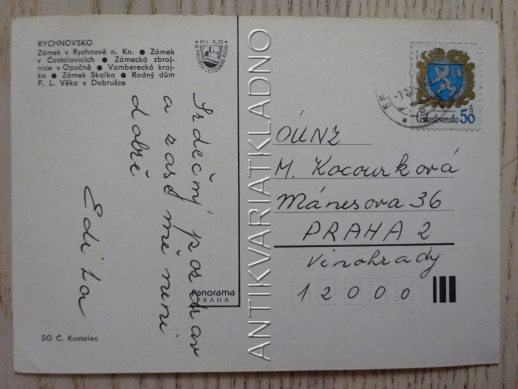 RYCHNOVSKO
Zámek v Rychnově n. Kn. ● Zámek
v Častolovicích ● Zámecká zbroj-
nice v Opočně ● Vamberecká kraj-
ka ● Zámek Skalka ● Rodný dům
F. L. Věka v Dobrušce
Srdečný pozdrav
a zase mě není
dobře
Edita
SG Č. Kostelec
Panorama
PRAHA
ANTIKVARIATKLADNO
Československo 50 h
OÚNZ
M. Kocourková
Mánesova 36
PRAHA 2
Vinohrady
12000